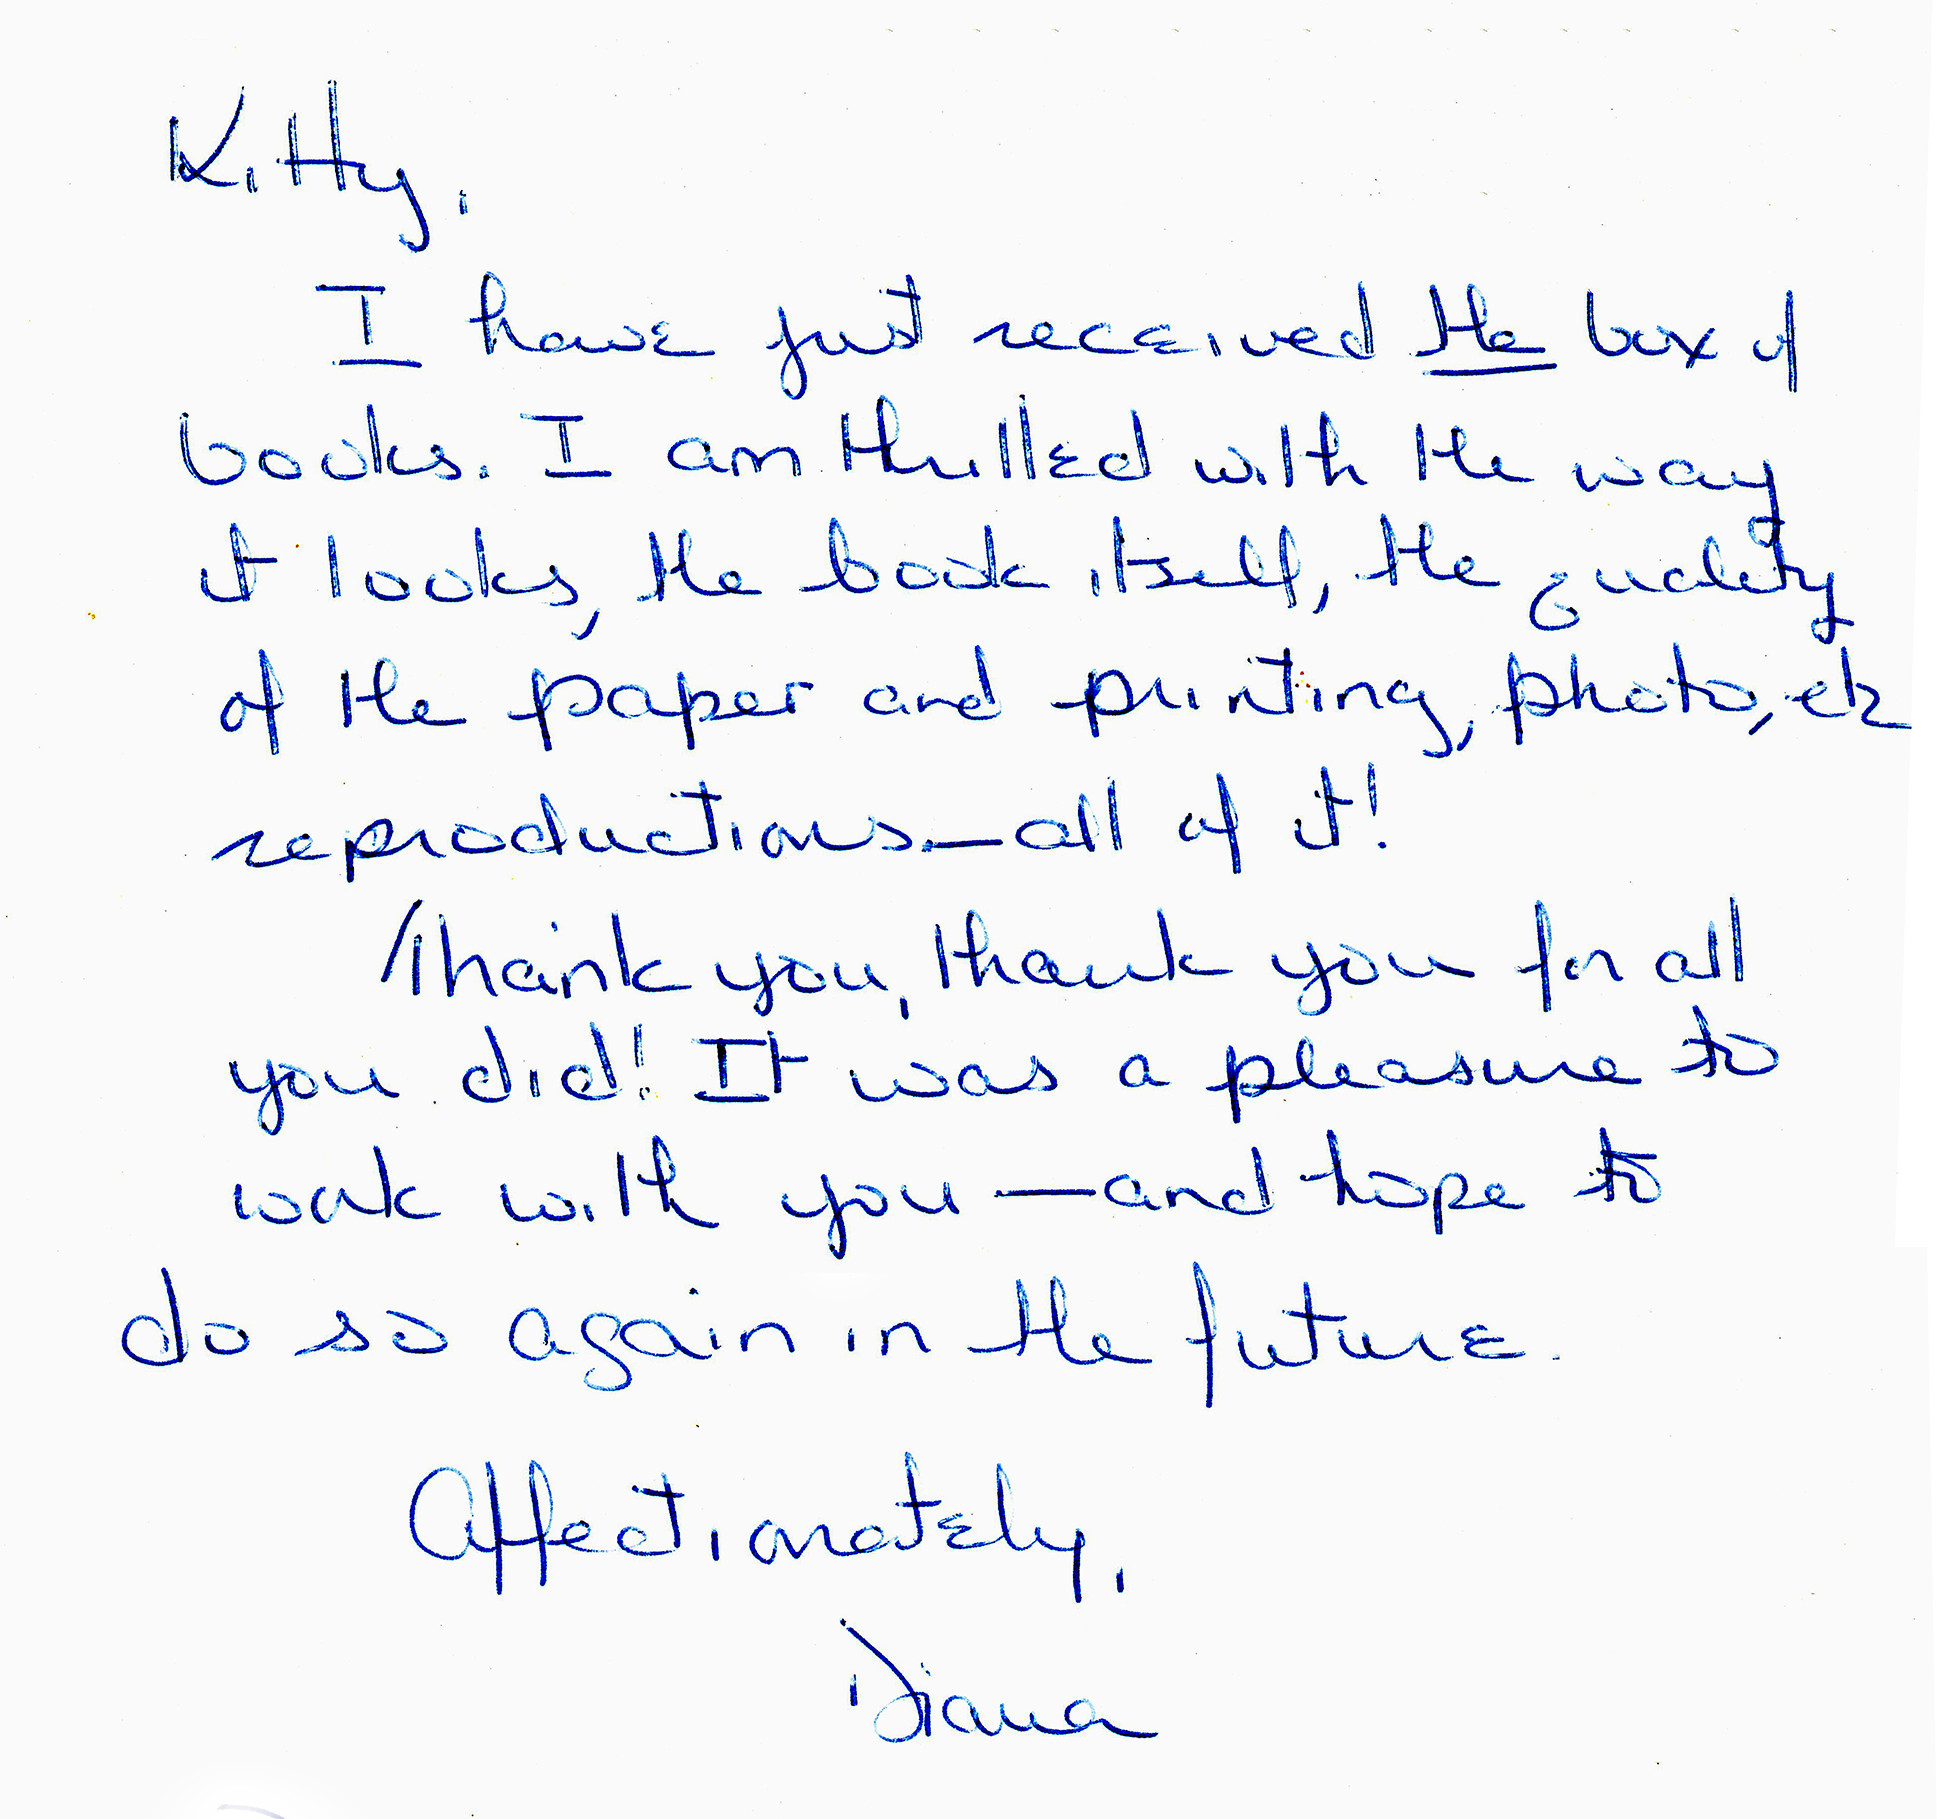 Kitty,
I have just received the box of
books. I am thrilled with the way
it looks, the book itself, the quality
of the paper and printing, photo, etc
reproductions—all of it!
Thank you, thank you for all
you did! It was a pleasure to
work with you—and hope to
do so again in the future.
Affectionately,
Diana